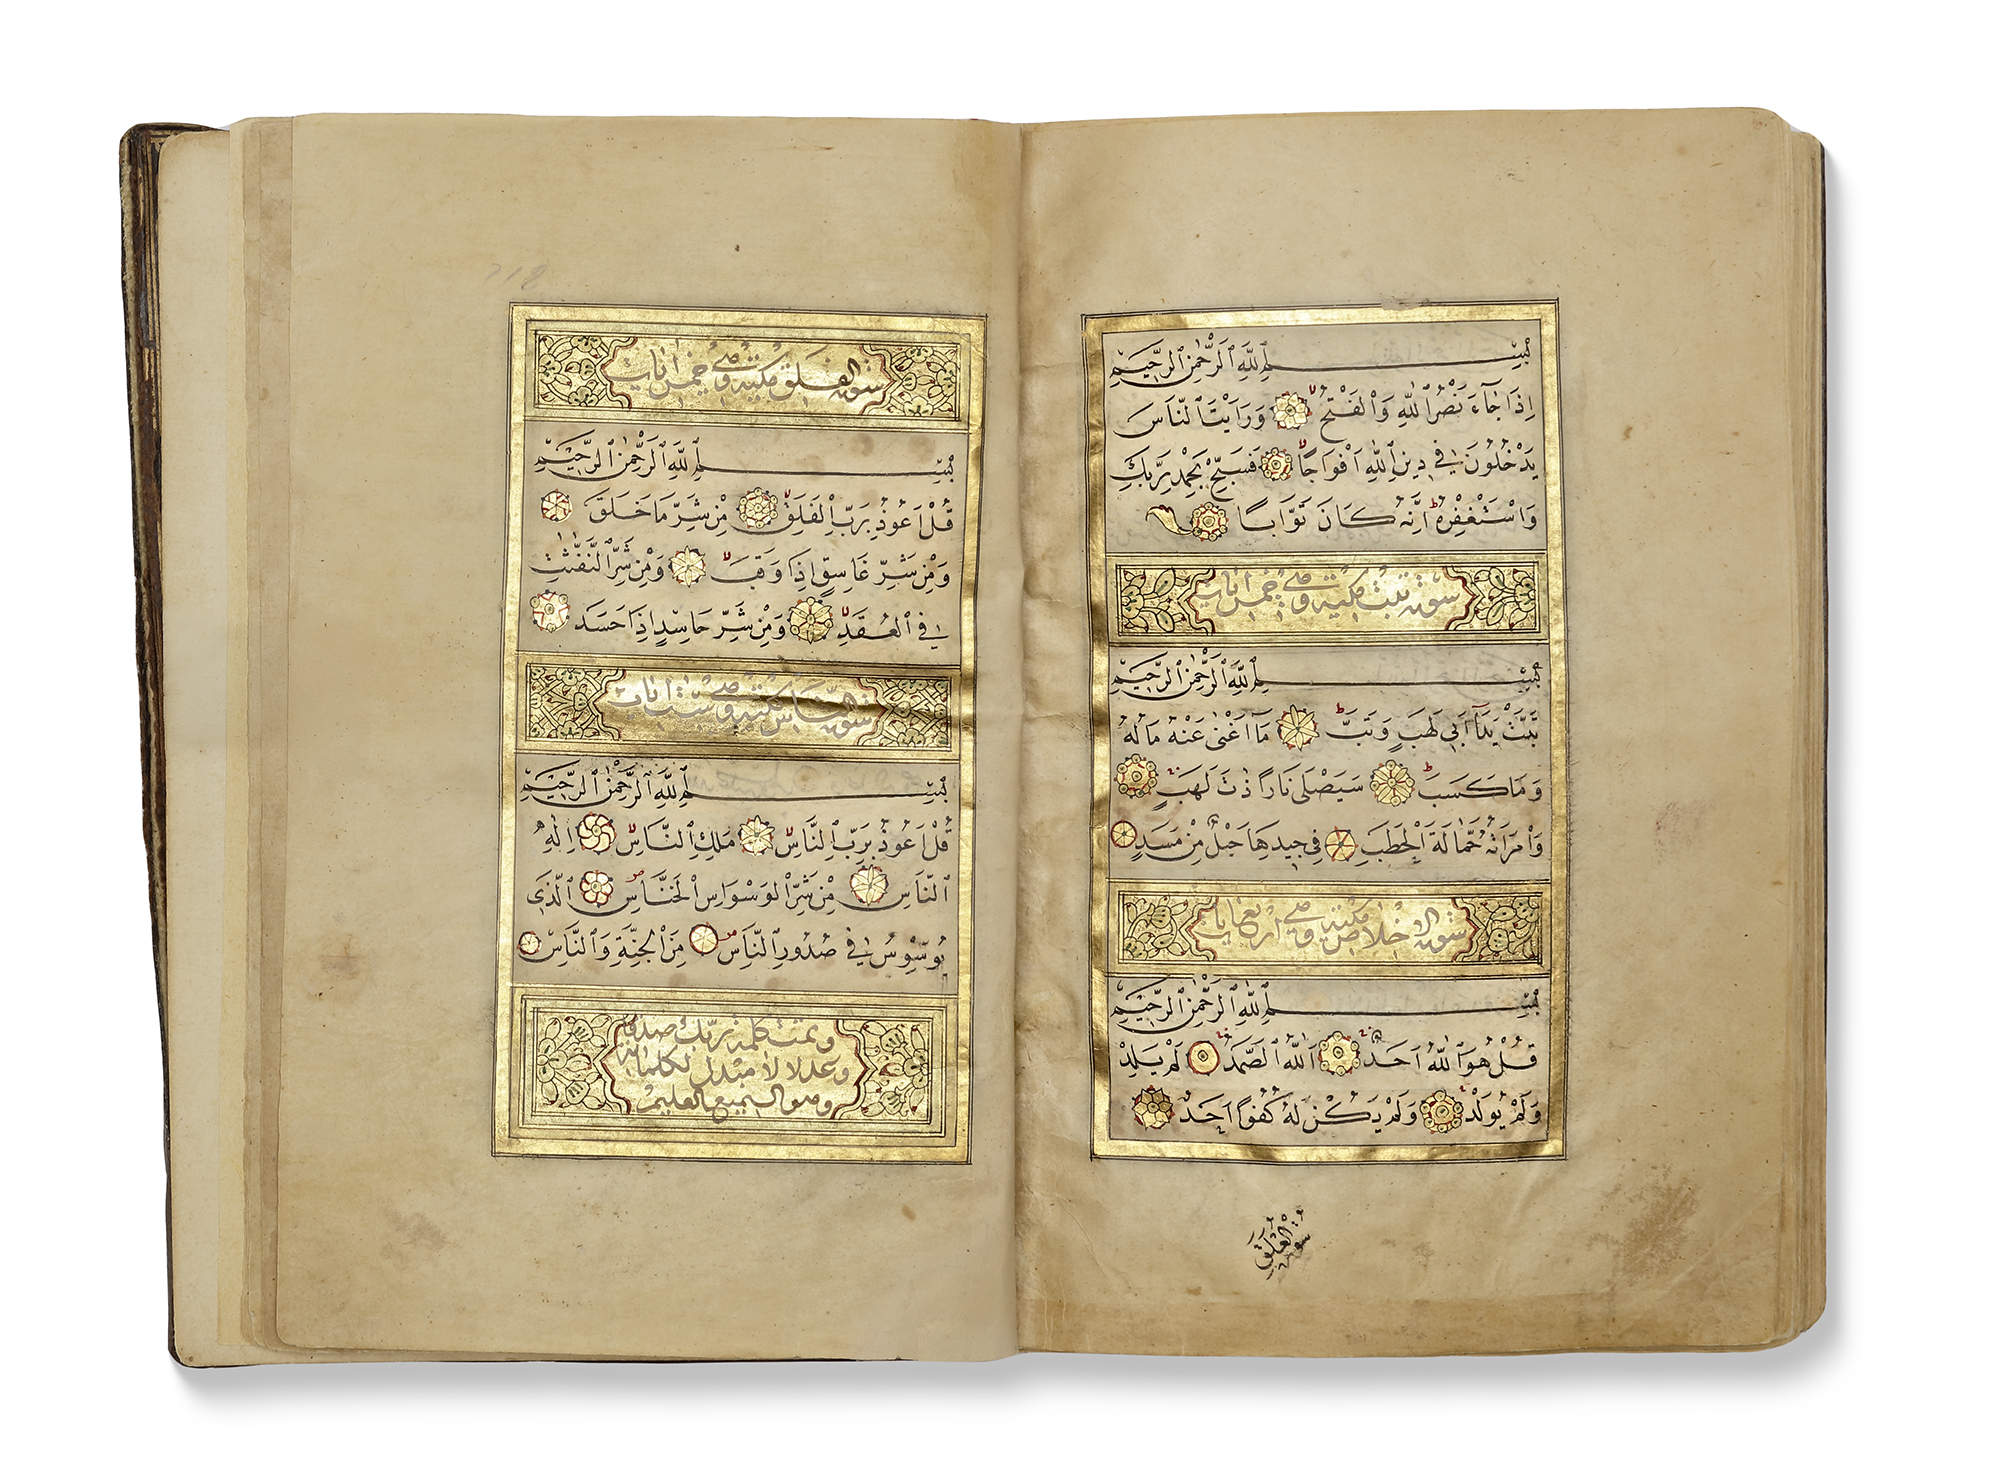 بِسْمِ اللهِ الرَّحْمٰنِ الرَّحِيْمِ
اِذَا جَآءَ نَصْرُ اللهِ وَالْفَتْحُ وَرَاَيْتَ النَّاسَ
يَدْخُلُونَ فِي دِينِ اللهِ اَفْوَاجًا فَسَبِّحْ بِحَمْدِ رَبِّكَ
وَاسْتَغْفِرْهُ اِنَّهُ كَانَ تَوَّابًا
سورة تبت مكية وهي خمس ايات
بِسْمِ اللهِ الرَّحْمٰنِ الرَّحِيْمِ
تَبَّتْ يَدَآ اَبِي لَهَبٍ وَتَبَّ مَآ اَغْنٰى عَنْهُ مَالُهُ
وَمَا كَسَبَ سَيَصْلٰى نَارًا ذَاتَ لَهَبٍ
وَامْرَاَتُهُ حَمَّالَةَ الْحَطَبِ فِي جِيدِهَا حَبْلٌ مِنْ مَسَدٍ
سورة الاخلاص مكية وهي اربع ايات
بِسْمِ اللهِ الرَّحْمٰنِ الرَّحِيْمِ
قُلْ هُوَ اللهُ اَحَدٌ اَللهُ الصَّمَدُ لَمْ يَلِدْ
وَلَمْ يُولَدْ وَلَمْ يَكُنْ لَهُ كُفُوًا اَحَدٌ
سورة الفلق
سورة الفلق مكية وهي خمس ايات
بِسْمِ اللهِ الرَّحْمٰنِ الرَّحِيْمِ
قُلْ اَعُوذُ بِرَبِّ الْفَلَقِ مِنْ شَرِّ مَا خَلَقَ
وَمِنْ شَرِّ غَاسِقٍ اِذَا وَقَبَ وَمِنْ شَرِّ النَّفّٰثٰتِ
فِي الْعُقَدِ وَمِنْ شَرِّ حَاسِدٍ اِذَا حَسَدَ
سورة الناس مكية وهي ست ايات
بِسْمِ اللهِ الرَّحْمٰنِ الرَّحِيْمِ
قُلْ اَعُوذُ بِرَبِّ النَّاسِ مَلِكِ النَّاسِ اِلٰهِ
النَّاسِ مِنْ شَرِّ الْوَسْوَاسِ الْخَنَّاسِ الَّذِي
يُوَسْوِسُ فِي صُدُورِ النَّاسِ مِنَ الْجِنَّةِ وَالنَّاسِ
وتمت كلمة ربك صدقا
وعدلا لا مبدل لكلماته
وهو السميع العليم